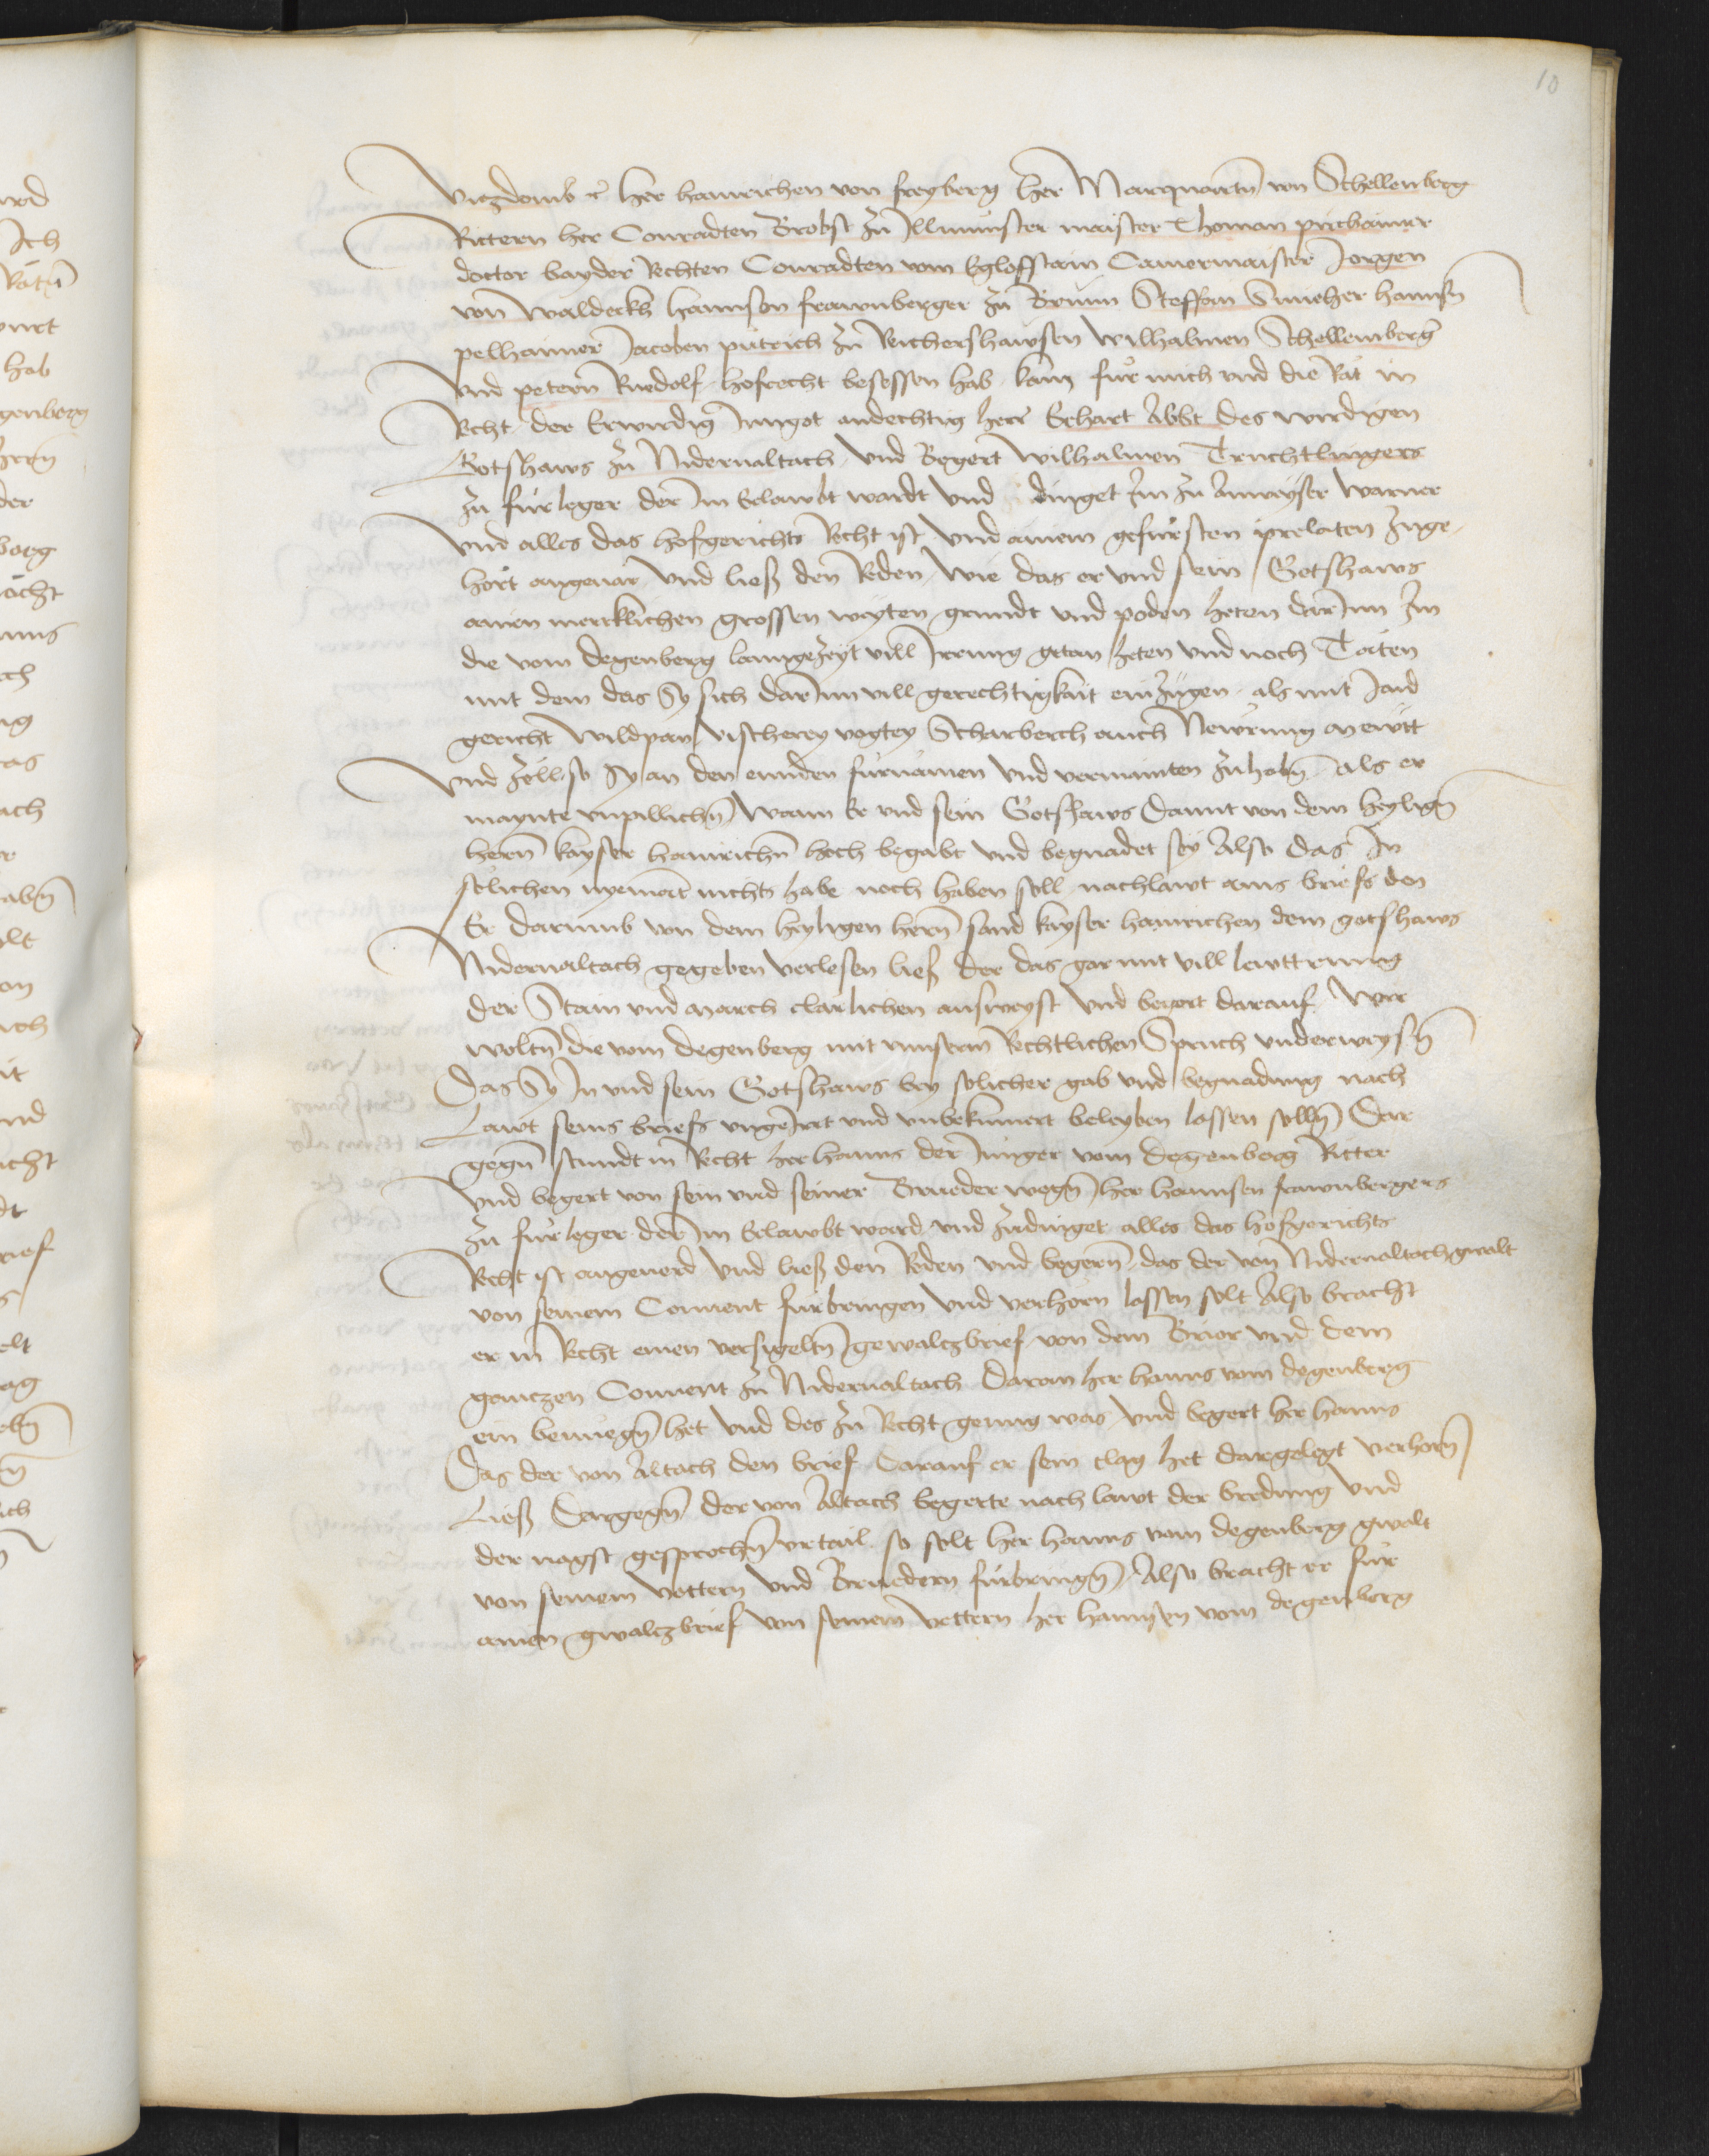 10
Vitzdomb etc her hainrichen von freyberg her Marquartn von Schellenberg
Rittern her Conradten Brobst zu Illmünster maister Thoman pirchaimer
doctor bayder Rechten Conradten vom Eglofstain Camermaister Jorgen
von Waldeckh hannsen frawnberger zu Brunn Steffan Smieher hannsn
pelhaimer Jacoben pütrich zu Reichershawsen Wilhalmen Schellemberg
Vnd petern Ruedolf hofrecht besessen hab kam für mich vnd die Rät in
Recht der Erwirdig Inngot andechtig herr Erhart Abbt des wirdigen
Gotshaws zu Nidernaltach vnd Begert Wilhalmen Truchtlingers
zu fürleger der im Erlawbt wardt vnd dinget Im zu Anweyser Warner
Vnd alles das hofgerichts Recht ist vnd ainem gefürsten prelaten zuge-
hört angeuär vnd ließ den Reden Wie das er vnd sein Gotshaws
ainen mercklichen grossen weyten grundt vnd poden heten darInn Im
die vom degenberg langezeyt vill Irrung getan heten vnd noch Täten
mit dem das Sy sich darInn vill gerechtigkait einzügen als mit Jaid
gericht Wildpan Vischerey vogtey Scharberch auch Newrung mewtt
Vnd Zöll so Sy an den ennden fürnämen vnd vermainten zuhabn als er
maynte vnpillichn Wann Er vnd sein Gotshaws Damit von dem heylign
herrn kayser hainrichn hoch begabt vnd begnadet sey Also das In
sölichen nyemant nichts habe noch haben soll nachlawt ains briefs den
Er darumb von dem heyligen herrn sand kayser hainrichen dem gotshaws
Nidernaltach gegeben verlesen ließ der das gar mit vill lewttrung
der Stain vnd march clärlichen ausweyst Vnd begert darauf Wir
woltn die vom degenberg mit vnnserm Rechtlichen Spruch vnderweysn
Das Sy In vnd sein Gotshaws bey solicher gab vnd begnadung nach
Lawt seins briefs vngeIrrt vnd vnbekümert beleyben lassen solln Dar
gegn stundt in Recht her hanns der Junger vom degenberg Ritter
Vnd begert von sein vnd seiner Brueder wegn her hannsen frawnbergers
zu fürleger der im Erlawbt ward vnd zudinget alles das hofgerichts
Recht ist angeuerd Vnd ließ den Reden vnd begern das der von Nidernaltach gwalt
von seinem Conuent fürbringen vnd verhörn lassen solt Also bracht
er in Recht einen versigeltn gewaltzbrief von dem Brior vnd dem
ganczen Conuent zu Nidernaltach Daran her hanns vom degenberg
ein benüegn het vnd des zu Recht genug was Vnd begert her hanns
Das der von Altach den brief Darauf er sein clag het dargelegt verhörn
Ließ Dargegn der von Altach begerte nach lawt der bredung vnd
der nagst gesprochn vrtail so solt her hanns vom degenberg gwalt
von seinem vettern vnd Bruedern fürbringn Also bracht er für
ainen gwaltzbrief von seinem vettern her hannsen vom degenberg